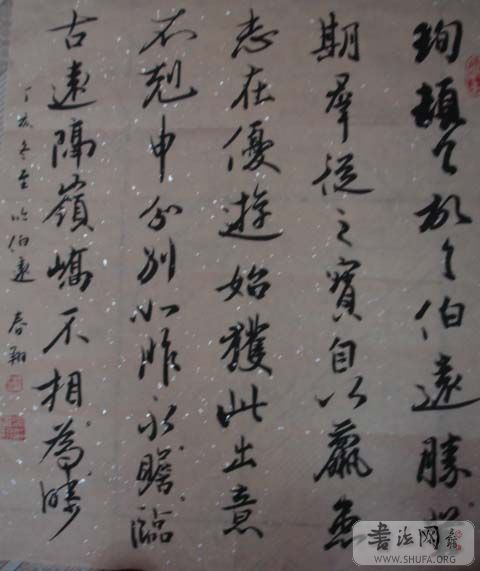 珣頓々首々伯遠勝
期羣從之寶自以羸患
志在優遊始獲此出意
不剋申分別如昨永瞻臨
古遠隔嶺嶠不相為疇
丁亥冬至临伯遠 春翔
書法网
WWW.SHUFA.ORG